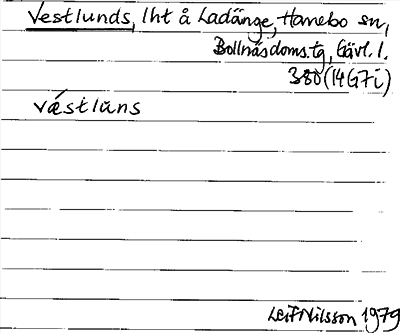 Vestlunds, lht å Ladänge, Hanebo sn,
Bollnäs doms.tg, Gävl. l.
380 (14G7i)
væ´stlŭns
Leif Nilsson 1979